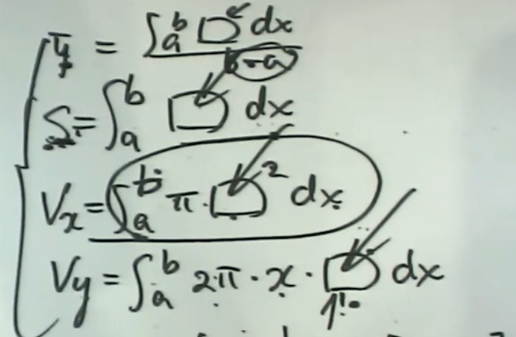 ȳ = ∫ₐᵇ □ dx / b-a
S = ∫ₐᵇ □ dx
Vx = ∫ₐᵇ π·□² dx
Vy = ∫ₐᵇ 2π·x·□ dx